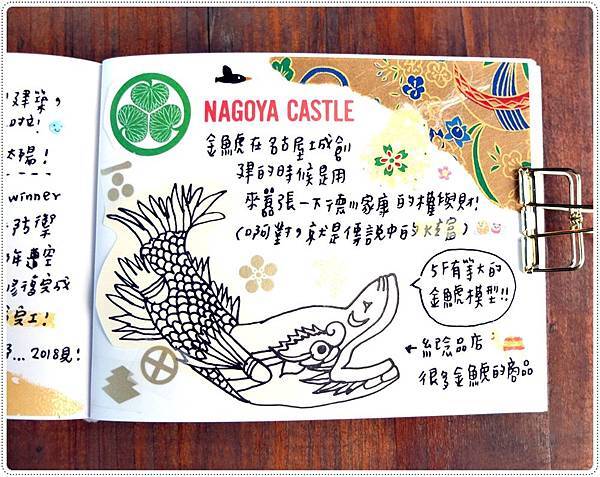 建築，
太陽！
winner
防禦
年遭空
修復變成
... 2018見！
NAGOYA CASTLE
金鯱在名古屋城創
建的時候是用
來囂張一下德川家康的權與財！
（啊對，就是傳說中的炫富）
5F有等大的
金鯱模型!!
← 紀念品店
很多金鯱的商品